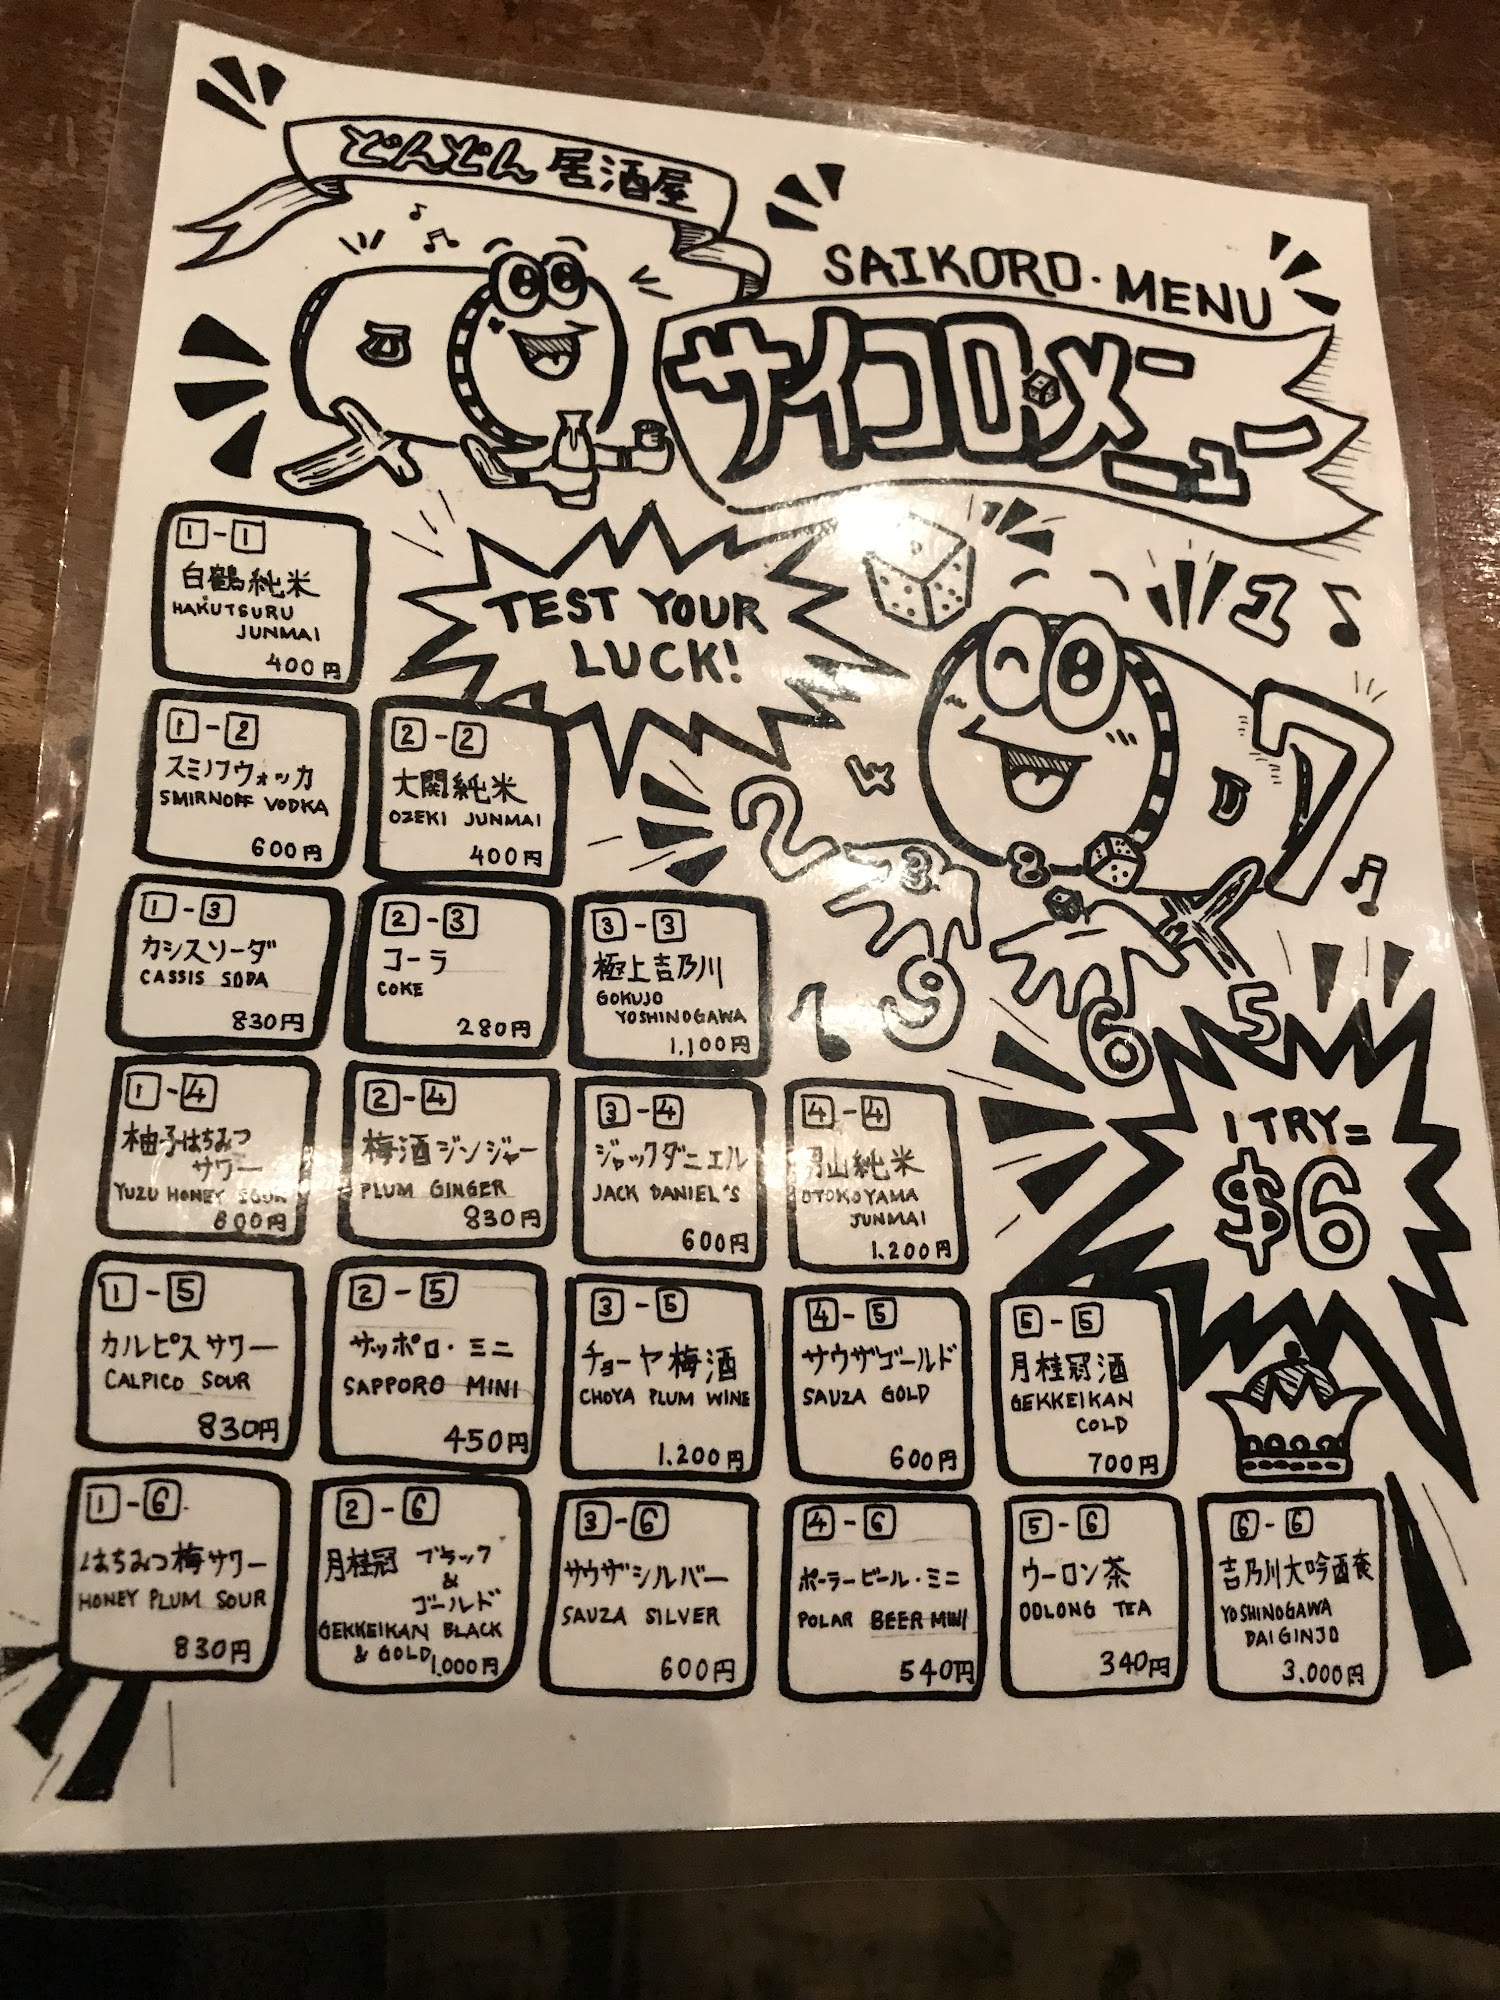 どんどん居酒屋
SAIKORO・MENU
サイコロ・メニュー
TEST YOUR
LUCK!
1 TRY=
$6
1-1
白鶴純米
HAKUTSURU
JUNMAI
400円
1-2
スミノフウォッカ
SMIRNOFF VODKA
600円
2-2
大関純米
OZEKI JUNMAI
400円
1-3
カシスソーダ
CASSIS SODA
830円
2-3
コーラ
COKE
280円
3-3
極上吉乃川
GOKUJO
YOSHINOGAWA
1.100円
1-4
柚子はちみつ
サワー
YUZU HONEY SOUR
800円
2-4
梅酒ジンジャー
PLUM GINGER
830円
3-4
ジャックダニエル
JACK DANIEL'S
600円
4-4
男山純米
OTOKOYAMA
JUNMAI
1.200円
1-5
カルピスサワー
CALPICO SOUR
830円
2-5
サッポロ・ミニ
SAPPORO MINI
450円
3-5
チョーヤ梅酒
CHOYA PLUM WINE
1.200円
4-5
サウザゴールド
SAUZA GOLD
600円
5-5
月桂冠酒
GEKKEIKAN
COLD
700円
1-6
はちみつ梅サワー
HONEY PLUM SOUR
830円
2-6
月桂冠 ブラック
&
ゴールド
GEKKEIKAN BLACK
& GOLD 1.000円
3-6
サウザシルバー
SAUZA SILVER
600円
4-6
ポーラービール・ミニ
POLAR BEER MINI
540円
5-6
ウーロン茶
OOLONG TEA
340円
6-6
吉乃川大吟
YOSHINOGAWA
DAIGINJO
3.000円